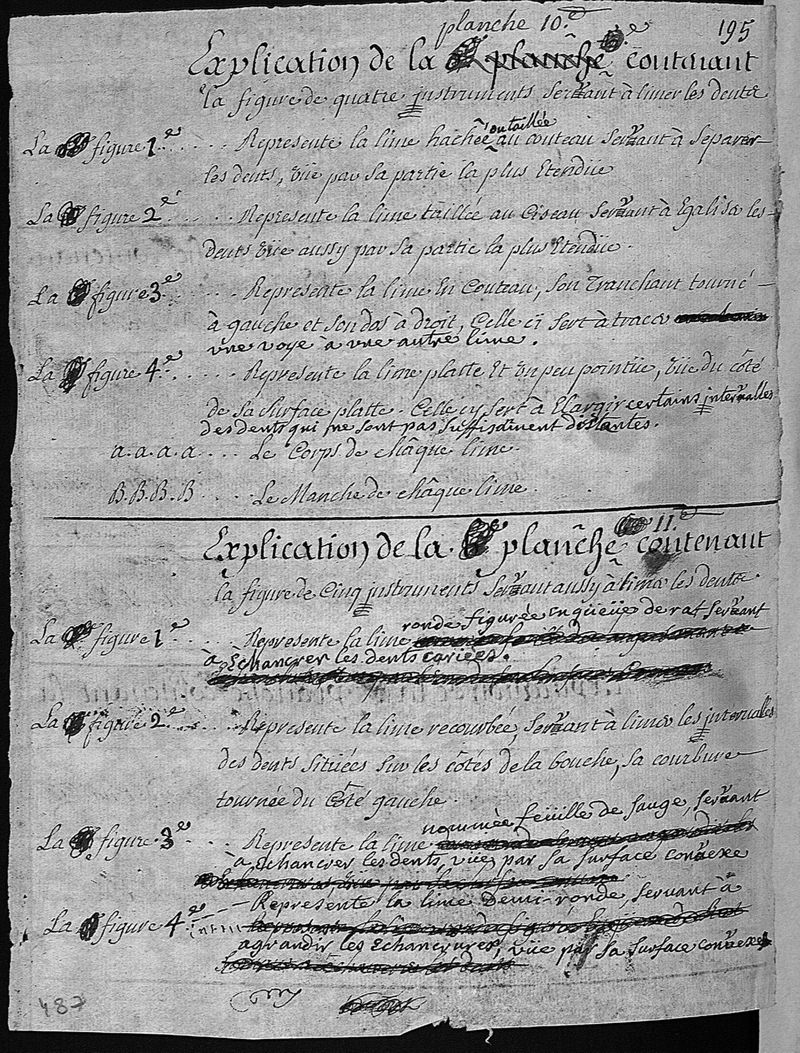 planche 10.e
195
Explication de la planche contenant
la figure de quatre instruments servant à limer les dents
La figure 1e ..... Represente la lime hachée ou taillée au couteau servant à separer
les dents, vüe par sa partie la plus Etendüe
La figure 2e ..... Represente la lime taillée au Ciseau servant à Egaliser les
dents vüe aussy par sa partie la plus Etendüe.
La figure 3e ..... Represente la lime En Couteau, son Tranchant tourné
à gauche et son dos à droit, Celle ci sert à tracer
vne voye à vne autre lime.
La figure 4e ..... Represente la lime platte Et un peu pointüe, vüe du côté
de sa surface platte. Celle cy sert à Elargir certains intervalles
des dents qui ne sont pas suffisament distantes.
a.a.a.a .... Le Corps de châque lime.
B.B.B.B ..... Le Manche de châque lime.
Explication de la planche 11.e contenant
la figure de Cinq instruments servant aussy à limer les dents.
La figure 1e ..... Represente la lime ronde figurée en queüe de rat servant
à Echancrer les dents cariées.
La figure 2e ..... Represente la lime recourbée, servant à limer les intervalles
des dents sitüées sur les côtés de la bouche, sa courbure
tournée du Côté gauche.
La figure 3e ..... Represente la lime nommée feüille de sauge, servant
à Echancrer les dents, vüe par sa surface convexe
La figure 4e Represente la lime demi-ronde, servant à
agrandir les Echancrures, vüe par sa surface convexe
487